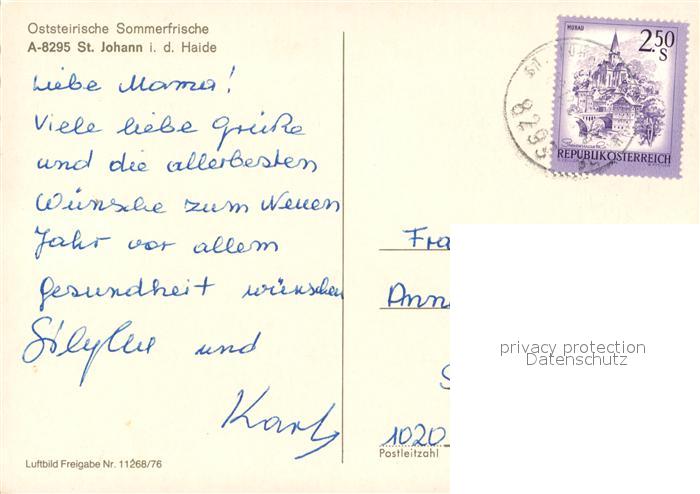 Oststeirische Sommerfrische
A-8295 St. Johann i. d. Haide
Liebe Mama!
Viele liebe Grüße
und die allerbesten
Wünsche zum Neuen
Jahr vor allem
Gesundheit wünschen
und
Karl
Luftbild Freigabe Nr. 11268/76
MURAU
2.50
S
REPUBLIK ÖSTERREICH
8295
Fra
Ann
S
1020
Postleitzahl
privacy protection
Datenschutz